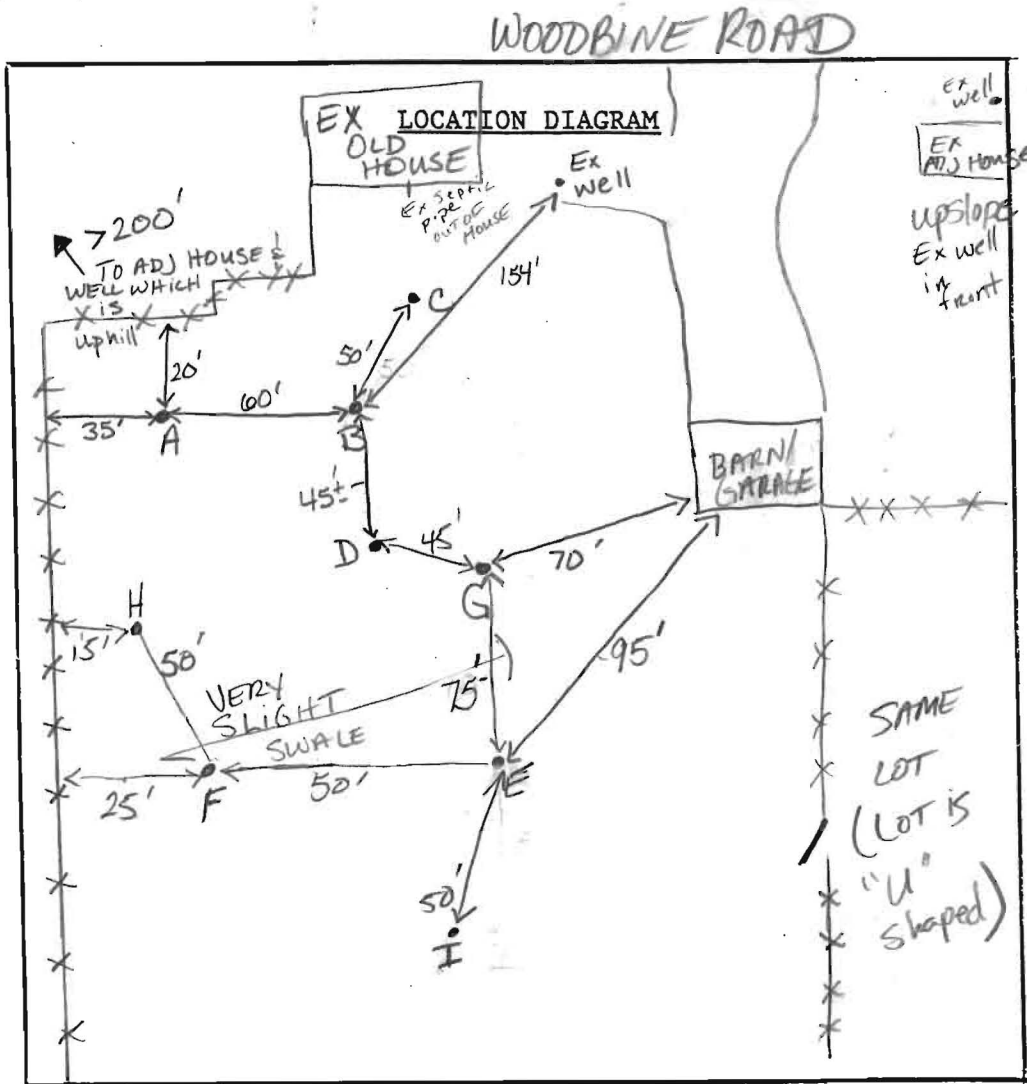 WOODBINE ROAD
LOCATION DIAGRAM
EX
OLD
HOUSE
EX SEPTIC
PIPE
OUT OF
HOUSE
Ex
well
Ex
well
EX
ADJ HOUSE
upslope
Ex well
in
front
>200'
TO ADJ HOUSE &
WELL WHICH
IS
uphill
20'
35'
A
60'
B
50'
C
154'
45'±
D
45'
G
70'
BARN/
GARAGE
H
15'
50'
VERY
SLIGHT
SWALE
75'
95'
25'
F
50'
E
50'
I
SAME
LOT
(LOT IS
"U"
shaped)